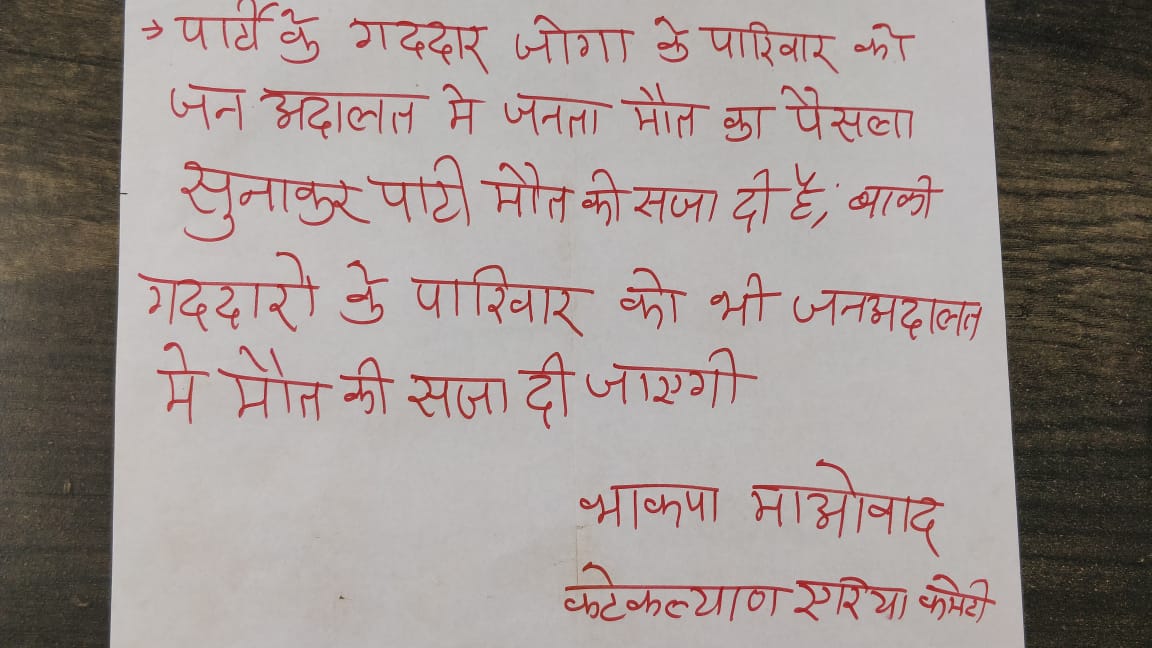 → पार्टी के गददार जोगा के पारिवार को
जन अदालत मे जनता मौत का पैसला
सुनाकर पाटी मौत की सजा दी है, बाकी
गददारो के पारिवार को भी जनअदालत
मे मौत की सजा दी जाएगी
भाकपा माओवाद
कटेकल्याण एरिया कमेटी